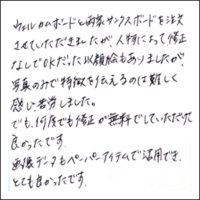 ウェルカムボードと両家サンクスボードを注文
させていただきましたが、人物によって修正
なしでOKだった似顔絵もありましたが、
写真のみで特徴を伝えるのは難しく
感じ苦労しました。
でも、何度でも修正が無料でしていただけて
良かったです。
画像データもペーパーアイテムで活用でき、
とても良かったです。